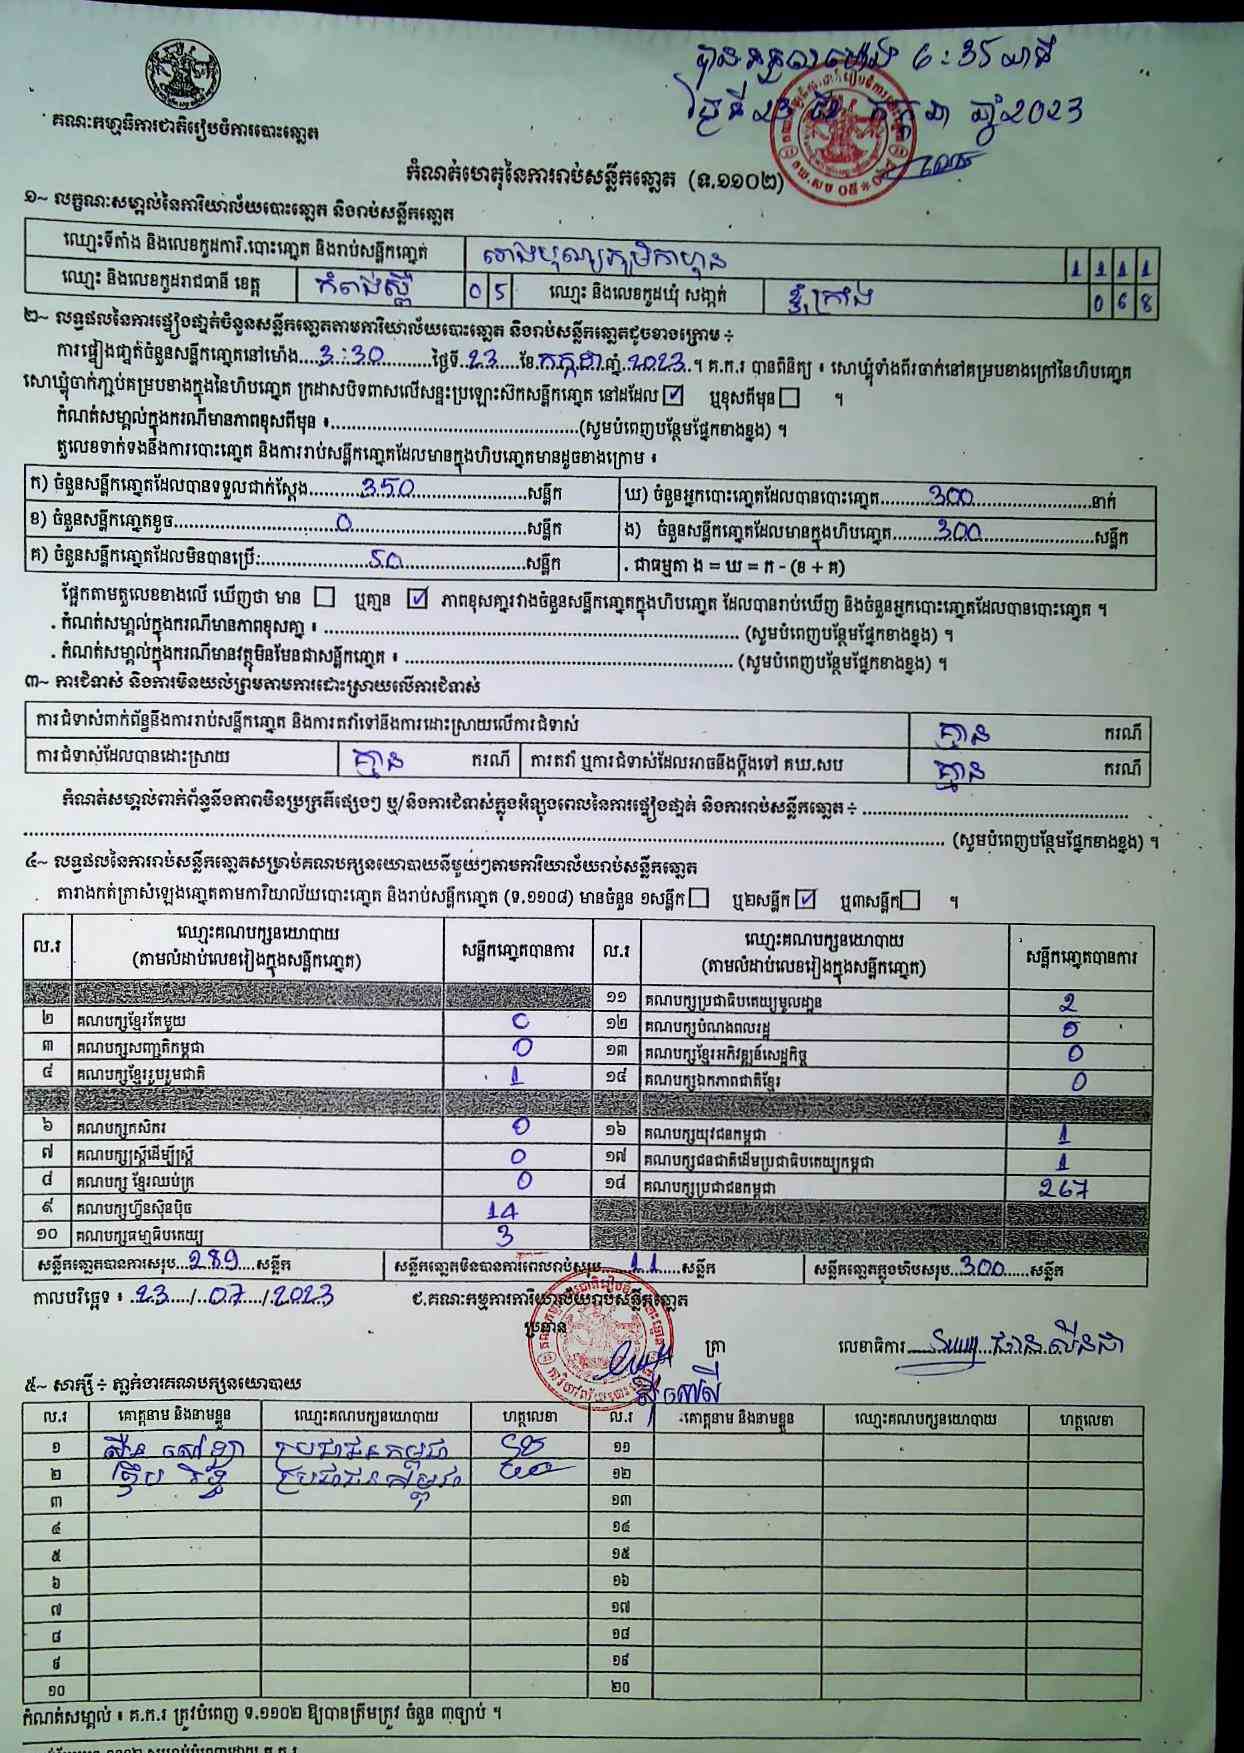 បានទទួលម៉ោង 6:35 នាទី
ថ្ងៃទី 23 ខែ កក្កដា ឆ្នាំ 2023
គណៈកម្មាធិការជាតិរៀបចំការបោះឆ្នោត
កំណត់ហេតុនៃការរាប់សន្លឹកឆ្នោត (ទ.១១០២)
១~ លក្ខណៈសម្គាល់នៃការិយាល័យបោះឆ្នោត និងរាប់សន្លឹកឆ្នោត
ឈ្មោះទីតាំង និងលេខកូដការិ.បោះឆ្នោត និងរាប់សន្លឹកឆ្នោត 1111
ឈ្មោះ និងលេខកូដរាជធានី ខេត្ត កំពង់ស្ពឺ 05 ឈ្មោះ និងលេខកូដឃុំ សង្កាត់ 068
២~ លទ្ធផលនៃការផ្ទៀងផ្ទាត់ចំនួនសន្លឹកឆ្នោតតាមការិយាល័យបោះឆ្នោត និងរាប់សន្លឹកឆ្នោតដូចខាងក្រោម ÷
ការផ្ទៀងផ្ទាត់ចំនួនសន្លឹកឆ្នោតនៅម៉ោង...3:30...ថ្ងៃទី..23...ខែ.កក្កដា.ឆ្នាំ..2023..។ គ.ក.រ បានពិនិត្យ ៖ សោឃ្លុំទាំងពីរចាក់នៅគម្របខាងក្រៅនៃហិបឆ្នោត
សោឃ្លុំចាក់ភ្ជាប់គម្របខាងក្នុងនៃហិបឆ្នោត ក្រដាសបិទពាសលើសន្ទះប្រឡោះស៊កសន្លឹកឆ្នោត នៅដដែល ☑ ឬខុសពីមុន ☐ ។
កំណត់សម្គាល់ក្នុងករណីមានភាពខុសពីមុន ៖........................(សូមបំពេញបន្ថែមផ្នែកខាងខ្នង) ។
តួលេខទាក់ទងនឹងការបោះឆ្នោត និងការរាប់សន្លឹកឆ្នោតដែលមានក្នុងហិបឆ្នោតមានដូចខាងក្រោម ៖
ក) ចំនួនសន្លឹកឆ្នោតដែលបានទទួលជាក់ស្តែង..........350..........សន្លឹក ឃ) ចំនួនអ្នកបោះឆ្នោតដែលបានបោះឆ្នោត..........300..........នាក់
ខ) ចំនួនសន្លឹកឆ្នោតខូច..........0..........សន្លឹក ង) ចំនួនសន្លឹកឆ្នោតដែលមានក្នុងហិបឆ្នោត..........300..........សន្លឹក
គ) ចំនួនសន្លឹកឆ្នោតដែលមិនបានប្រើ:..........50..........សន្លឹក . ជាធម្មតា ង = ឃ = ក - (ខ + គ)
ផ្អែកតាមតួលេខខាងលើ ឃើញថា មាន ☐ ឬគ្មាន ☑ ភាពខុសគ្នារវាងចំនួនសន្លឹកឆ្នោតក្នុងហិបឆ្នោត ដែលបានរាប់ឃើញ និងចំនួនអ្នកបោះឆ្នោតដែលបានបោះឆ្នោត ។
. កំណត់សម្គាល់ក្នុងករណីមានភាពខុសគ្នា ៖ ........................ (សូមបំពេញបន្ថែមផ្នែកខាងខ្នង) ។
. កំណត់សម្គាល់ក្នុងករណីមានវត្ថុមិនមែនជាសន្លឹកឆ្នោត ៖ ........................ (សូមបំពេញបន្ថែមផ្នែកខាងខ្នង) ។
៣~ ការជំទាស់ និងការមិនយល់ព្រមតាមការដោះស្រាយលើការជំទាស់
ការជំទាស់ពាក់ព័ន្ធនឹងការរាប់សន្លឹកឆ្នោត និងការតវ៉ាទៅនឹងការដោះស្រាយលើការជំទាស់ គ្មាន ករណី
ការជំទាស់ដែលបានដោះស្រាយ គ្មាន ករណី ការតវ៉ា ឬការជំទាស់ដែលអាចនឹងប្តឹងទៅ គឃ.សប គ្មាន ករណី
កំណត់សម្គាល់ពាក់ព័ន្ធនឹងភាពមិនប្រក្រតីផ្សេងៗ ឬ/និងការជំទាស់ក្នុងអំឡុងពេលនៃការផ្ទៀងផ្ទាត់ និងការរាប់សន្លឹកឆ្នោត ÷ ........................
........................ (សូមបំពេញបន្ថែមផ្នែកខាងខ្នង) ។
៤~ លទ្ធផលនៃការរាប់សន្លឹកឆ្នោតសម្រាប់គណបក្សនយោបាយនីមួយៗតាមការិយាល័យរាប់សន្លឹកឆ្នោត
តារាងកត់ត្រាសំឡេងឆ្នោតតាមការិយាល័យបោះឆ្នោត និងរាប់សន្លឹកឆ្នោត (ទ.១១០៨) មានចំនួន ១សន្លឹក ☐ ឬ២សន្លឹក ☑ ឬ៣សន្លឹក ☐ ។
ល.រ ឈ្មោះគណបក្សនយោបាយ (តាមលំដាប់លេខរៀងក្នុងសន្លឹកឆ្នោត) សន្លឹកឆ្នោតបានការ ល.រ ឈ្មោះគណបក្សនយោបាយ (តាមលំដាប់លេខរៀងក្នុងសន្លឹកឆ្នោត) សន្លឹកឆ្នោតបានការ
១១ គណបក្សប្រជាធិបតេយ្យមូលដ្ឋាន 2
២ គណបក្សខ្មែរតែមួយ 0 ១២ គណបក្សបំណងពលរដ្ឋ 0
៣ គណបក្សសញ្ជាតិកម្ពុជា 0 ១៣ គណបក្សខ្មែរអភិវឌ្ឍន៍សេដ្ឋកិច្ច 0
៤ គណបក្សខ្មែររួបរួមជាតិ 1 ១៤ គណបក្សឯកភាពជាតិខ្មែរ 0
៦ គណបក្សកសិករ 0 ១៦ គណបក្សយុវជនកម្ពុជា 1
៧ គណបក្សស្ត្រីដើម្បីស្ត្រី 0 ១៧ គណបក្សជនជាតិដើមប្រជាធិបតេយ្យកម្ពុជា 1
៨ គណបក្ស ខ្មែរឈប់ក្រ 0 ១៨ គណបក្សប្រជាជនកម្ពុជា 267
៩ គណបក្សហ្វ៊ុនស៊ិនប៉ិច 14
១០ គណបក្សធម្មាធិបតេយ្យ 3
សន្លឹកឆ្នោតបានការសរុប...289....សន្លឹក សន្លឹកឆ្នោតមិនបានការពេលរាប់សរុប.....11.....សន្លឹក សន្លឹកឆ្នោតក្នុងហិបសរុប...300.....សន្លឹក
កាលបរិច្ឆេទ ៖ ..23.../..07.../.2023 ជ.គណៈកម្មការការិយាល័យរាប់សន្លឹកឆ្នោត
ប្រធាន ត្រា លេខាធិការ
៥~ សាក្សី ÷ ភ្នាក់ងារគណបក្សនយោបាយ
ល.រ គោត្តនាម និងនាមខ្លួន ឈ្មោះគណបក្សនយោបាយ ហត្ថលេខា ល.រ គោត្តនាម និងនាមខ្លួន ឈ្មោះគណបក្សនយោបាយ ហត្ថលេខា
១ ប្រជាជនកម្ពុជា ១១
២ ប្រជាជនកម្ពុជា ១២
៣ ១៣
៤ ១៤
៥ ១៥
៦ ១៦
៧ ១៧
៨ ១៨
៩ ១៩
១០ ២០
កំណត់សម្គាល់ ៖ គ.ក.រ ត្រូវបំពេញ ទ.១១០២ ឱ្យបានត្រឹមត្រូវ ចំនួន ៣ច្បាប់ ។